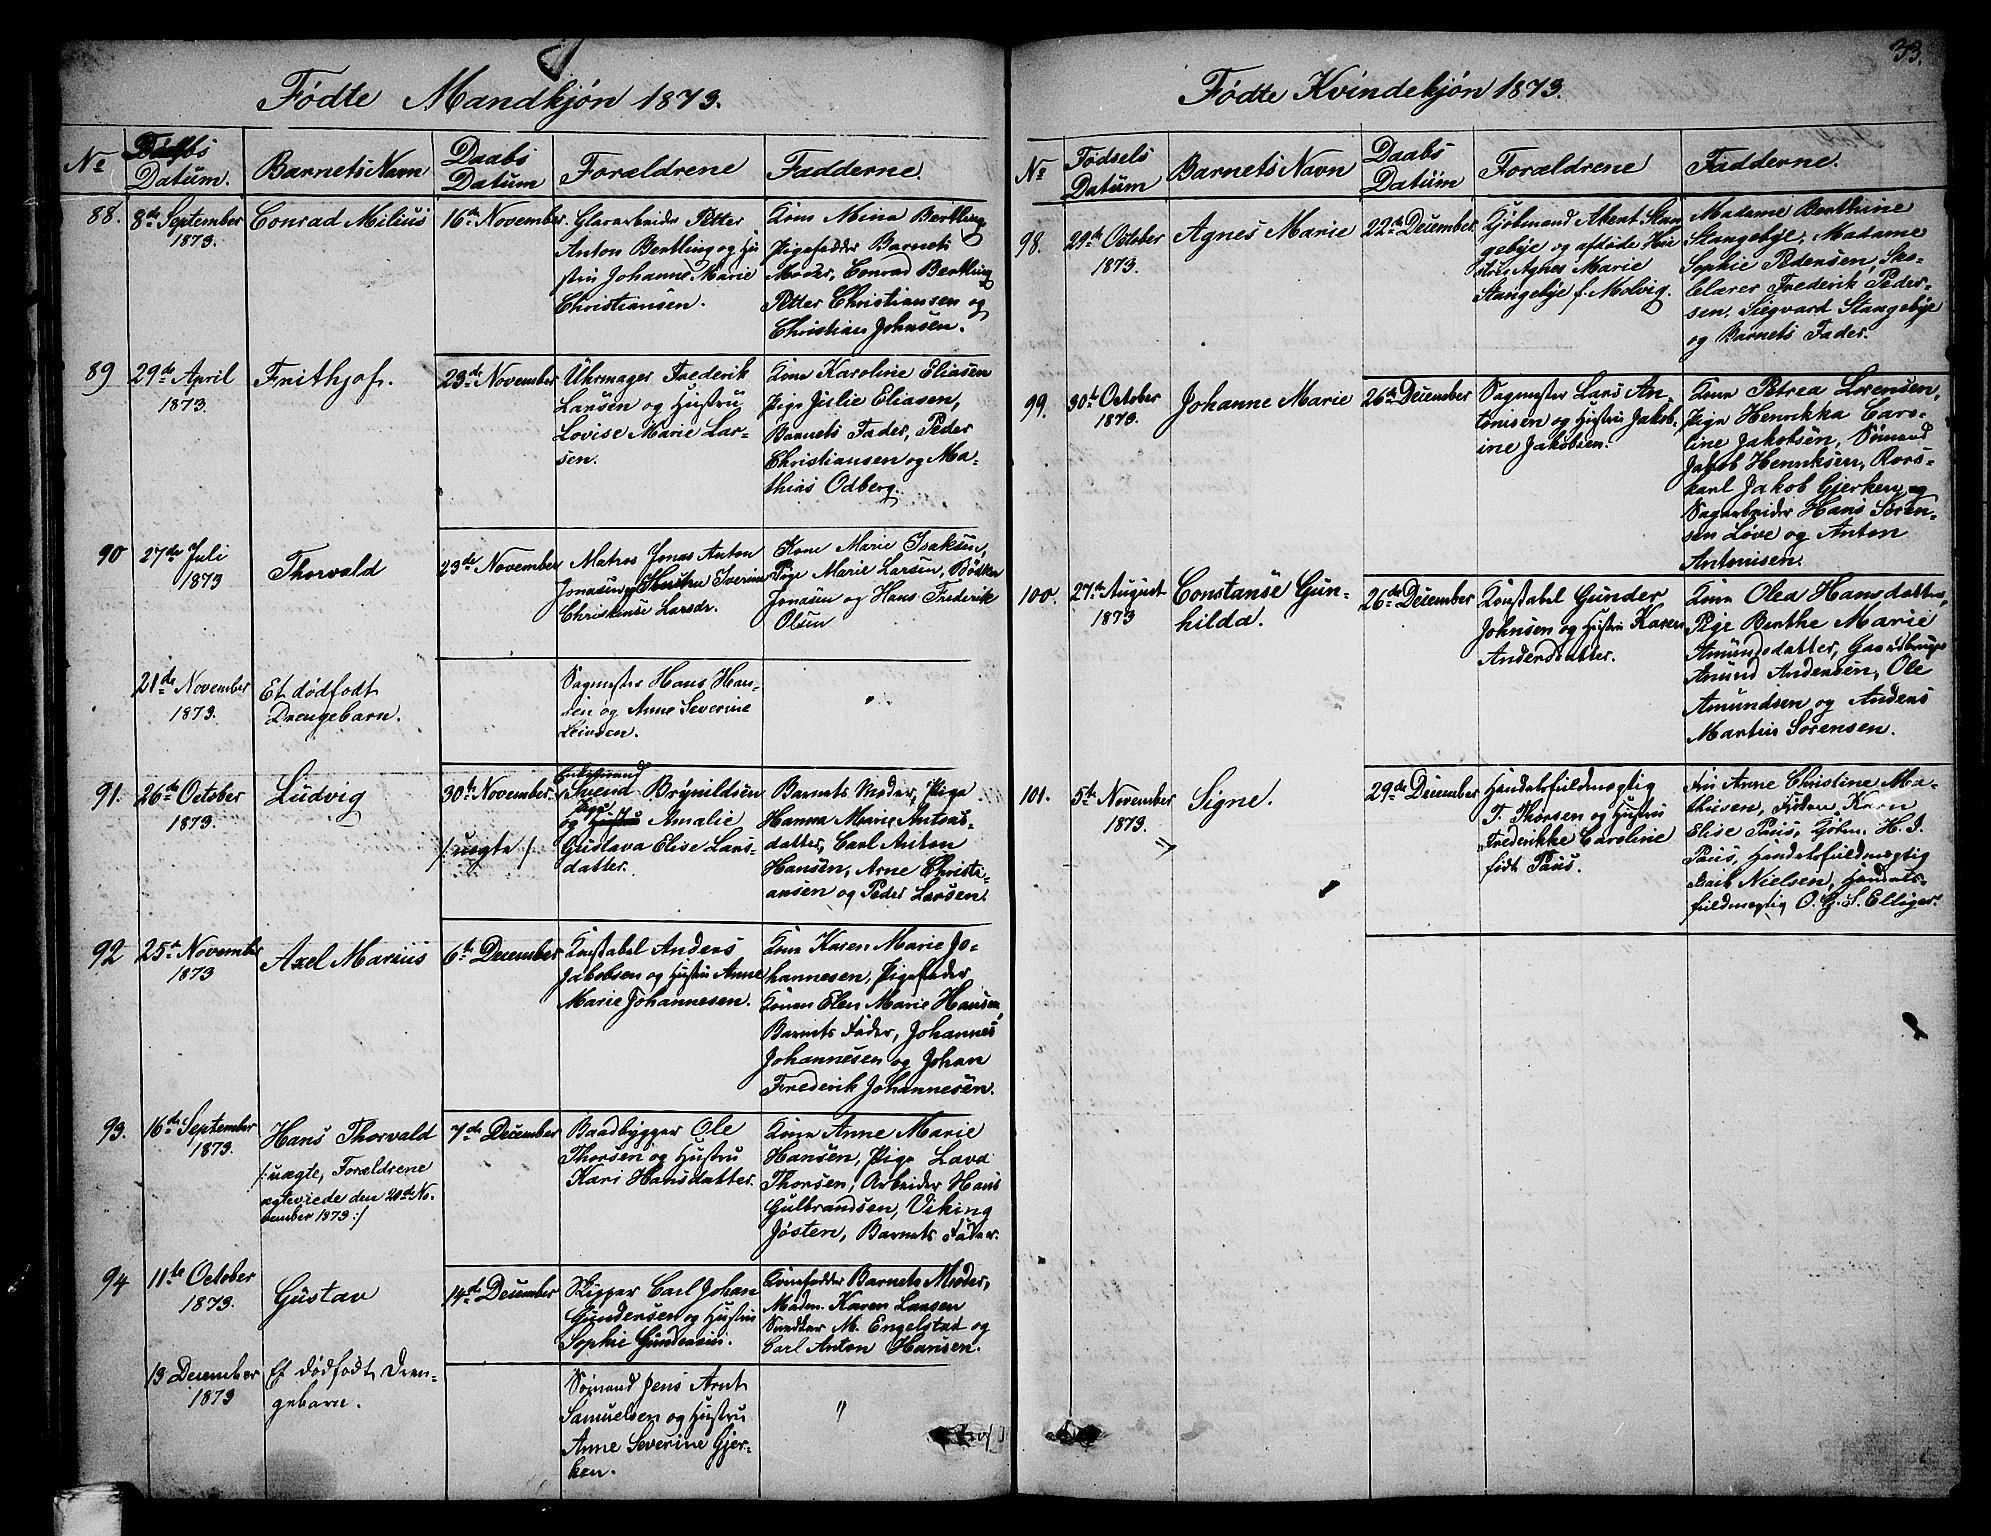 33.
Fødte Mandkjøn 1873.
No
Datum.
Barnets Navn
Daabs
Datum
Forældrene
Fadderne.
88.
8de September
1873.
Conrad Milius
16de November
Glasarbeider Petter
Anton Bertling og Hu
stru Johanne Marie
Christiansen.
Kone Mina Bertling
Pigefadder Barnets
Moder, Conrad Bertling
Petter Christiansen og
Christian Johnsen.
89
29de April
1873.
Frithjof.
23de November
Uhrmager Frederik
Larsen og Hustru
Lovise Marie Lar-
sen.
Kone Karoline Eliasen
Pige Julie Eliasen,
Barnets Fader, Peder
Christiansen og Ma-
thias Odberg.
90
27de Juli
1873
Thorvald
23de November
Matros Jonas Anton
Jonasen og Hustru Sverine
Christense Larsdr.
Kone Marie Isaksen,
Pige Marie Larsen, Bødker
Jonasen og Hans Frederik
Olsen
21de November
1873.
Et dødfødt
Drengebarn.
Sagmester Hans Han-
sen og Anne Severine
"
91.
26de October
1873.
Ludvig
30te November.
/: uægte :/
Enkemand
Svend Brynildsen
Pige
og Hustru Amalie
Gustava Elise Lars-
datter.
Barnets Moder, Pige
Hanna Marie Antons-
datter, Carl Anton
Hansen, Arne Christi-
ansen og Peder Larsen.
92
25de November
1873
Axel Marius
6te December
Konstabel Anders
Jakobsen og Hustru Anne
Marie Johannesen.
Kone Karen Marie Jo-
hannesen, Pigefader
Konen Elen Marie Hansen,
Barnets Fader, Johannes
Johannesen og Johan
Frederik Johannesen.
93.
16de September
1873.
Hans Thorvald
/: uægte, Forældrene
ægteviede den 20de No-
vember 1873 :/
7de December
Baadbygger Ole
Thorsen og Hustru
Kari Hansdatter.
Kone Anne Marie
Hansen, Pige Lava
Thorsen, Arbeider Hans
Gulbrandsen, Viking
Jøsten, Barnets Fader.
94
11te October
1873.
Gustav
14de December
Skipper Carl Johan
Gundersen og Hustru
Sophie Gundersen.
Konefadder Barnets Moder,
Madm. Karen Laasen
Snedker M. Engelstad og
Carl Anton Hansen.
13 December
1873
Et dødfødt Dren-
gebarn.
Sømand Jens Arnt
Samuelsen og Hustru
Anne Severine Gjer-
ken.
"
Fødte Kvindekjøn 1873.
No
Fødsels
Datum
Barnets Navn
Daabs
Datum
Forældrene
Fadderne.
98.
29de October
1873.
Agnes Marie
22de December
Kjøbmand Akent Stan
gebye og afdøde Hu
stru Agnes Marie
Stangebye f. Molvig.
Madame Berthine
Stangebye, Madame
Sophie Pedersen, Sko-
lelærer Frederik Peder-
sen, Siegvard Stangebye
og Barnets Fader.
99.
30te October
1873.
Johanne Marie
26de December
Sagmester Lars An-
tonisen og Hustru Jakob-
ine Jakobsen.
Kone Petrea Lorensen,
Pige Henrikka Caro-
line Jakobsen, Sømand
Jakob Henriksen, Rors-
karl Jakob Gjerken og
Sagarbeider Hans Søren-
sen Løve og Anton
Antonisen.
100.
27de August
1873
Constanse Gun-
hilda.
26de December
Konstabel Gunder
Johnsen og Hustru Karen
Andersdatter.
Kone Olea Hansdatter,
Pige Berthe Marie
Amundsdatter, Gaardbruger
Amund Andersen, Ole
Amundsen og Anders
Martin Sørensen.
101.
5te November
1873.
Signe.
29de December
Handelsfuldmægtig
T. Thorsen og Hustru
Frederikke Caroline
født Paus.
Fru Anne Christine Ma-
thisen, Frøken Karn
Elise Paus, Kjøbm. H. J.
Paus, Handelsfuldmægtig
Nielsen, Handels-
fuldmægtig O. G. S. Elliger.